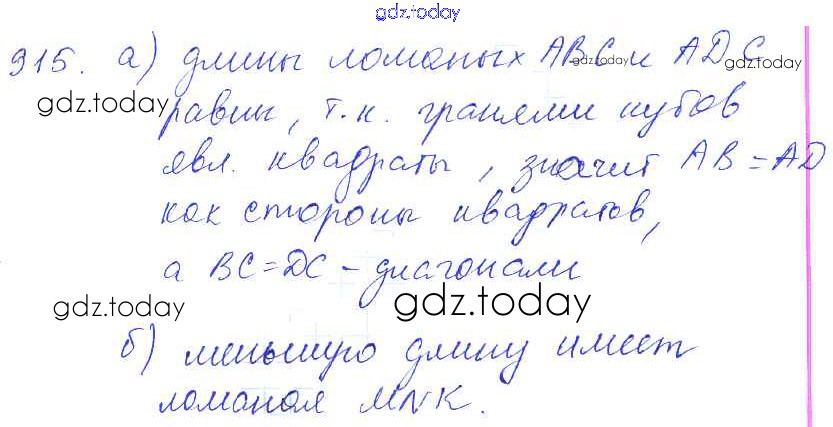 gdz.today
915. а) длины ломаных ABC и ADC
gdz.today
gdz.today
gdz.today
равны, т.к. гранями кубов
явл. квадраты, значит AB = AD
как стороны квадратов,
а BC = DC - диагонали
gdz.today
gdz.today
б) меньшую длину имеет
ломаная MNK.